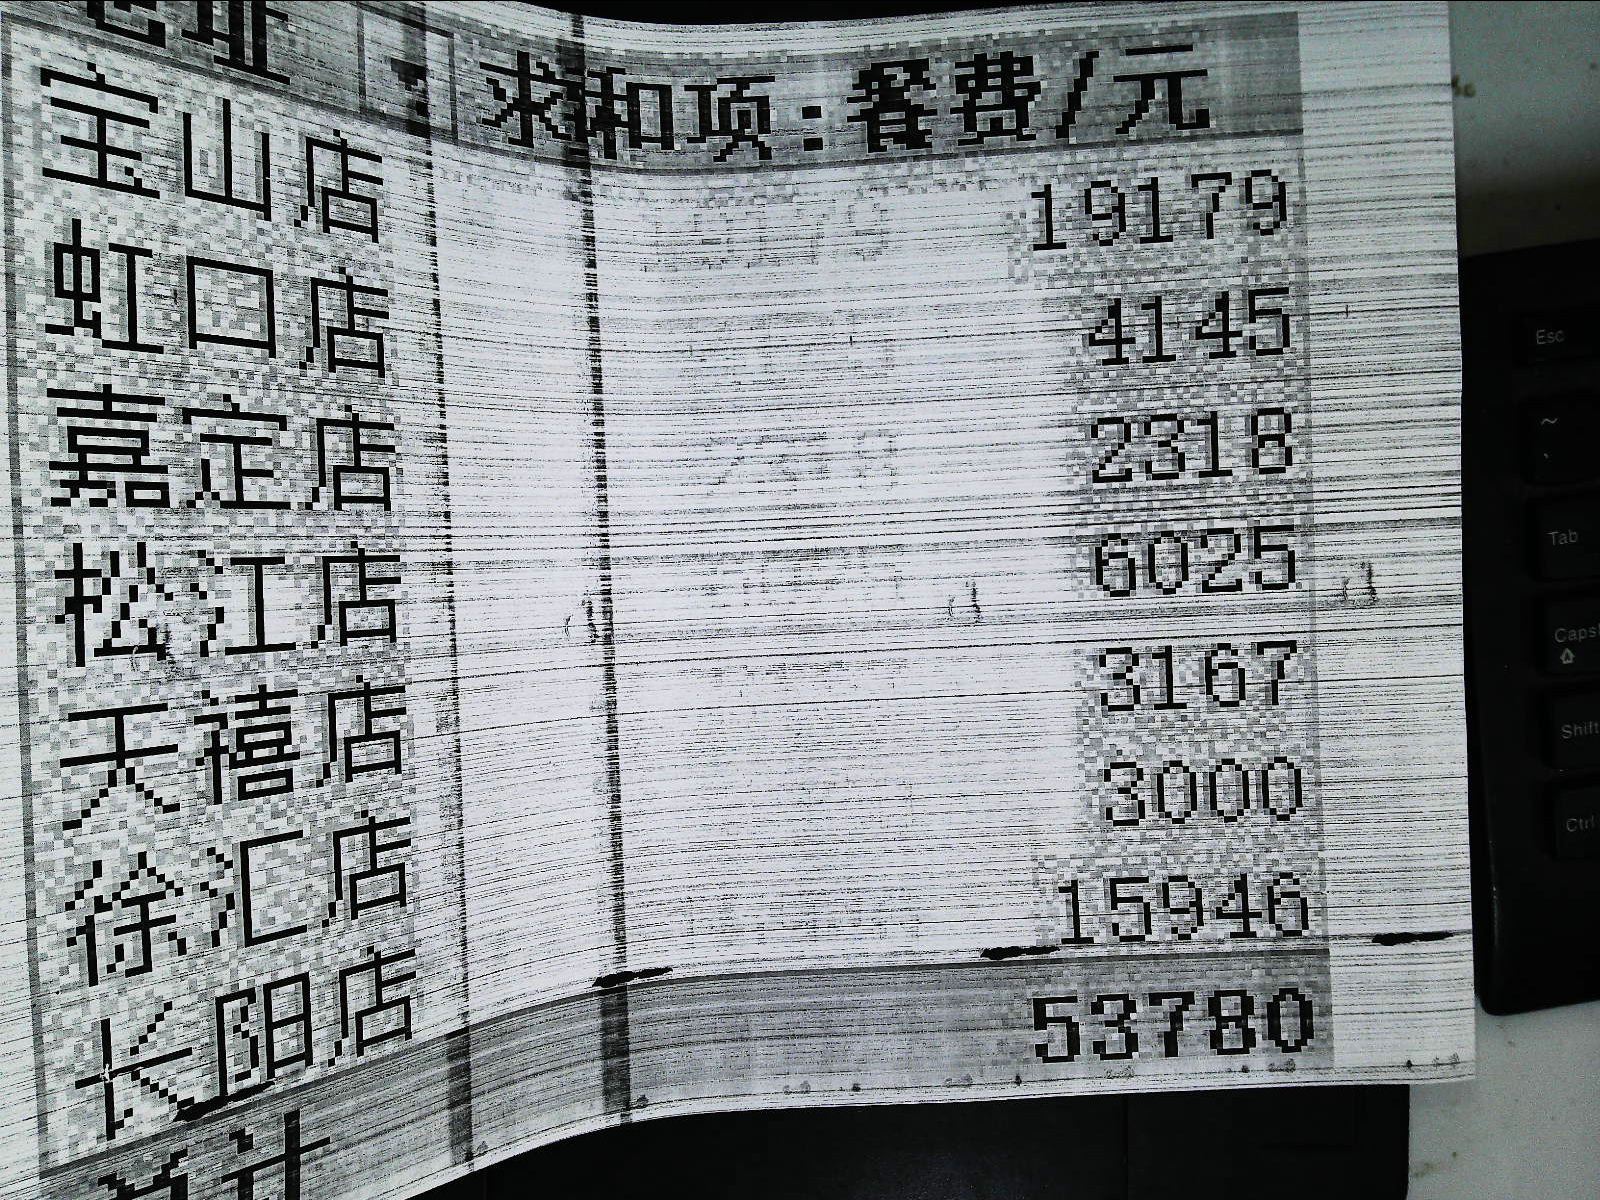 求和项:餐费/元
宝山店 19179
虹口店 4145
嘉定店 2318
松江店 6025
天禧店 3167
徐汇店 3000
长阳店 15946
总计 53780
Esc
~
Tab
Caps
Shift
Ctrl